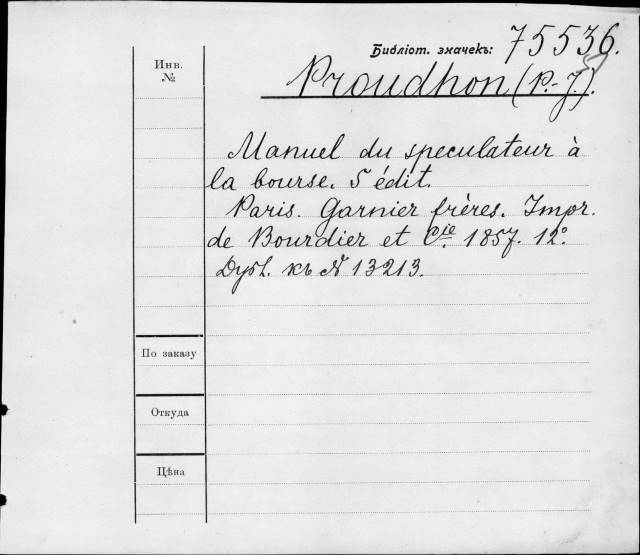 Библіот. значекъ: 75536.
Инв.
№
Proudhon (P.-J.).
Manuel du speculateur à
la bourse. 5 édit.
Paris. Garnier frères. Impr.
de Bourdier et Cie. 1857. 12°.
Дубл. къ № 13213.
По заказу
Откуда
Цѣна